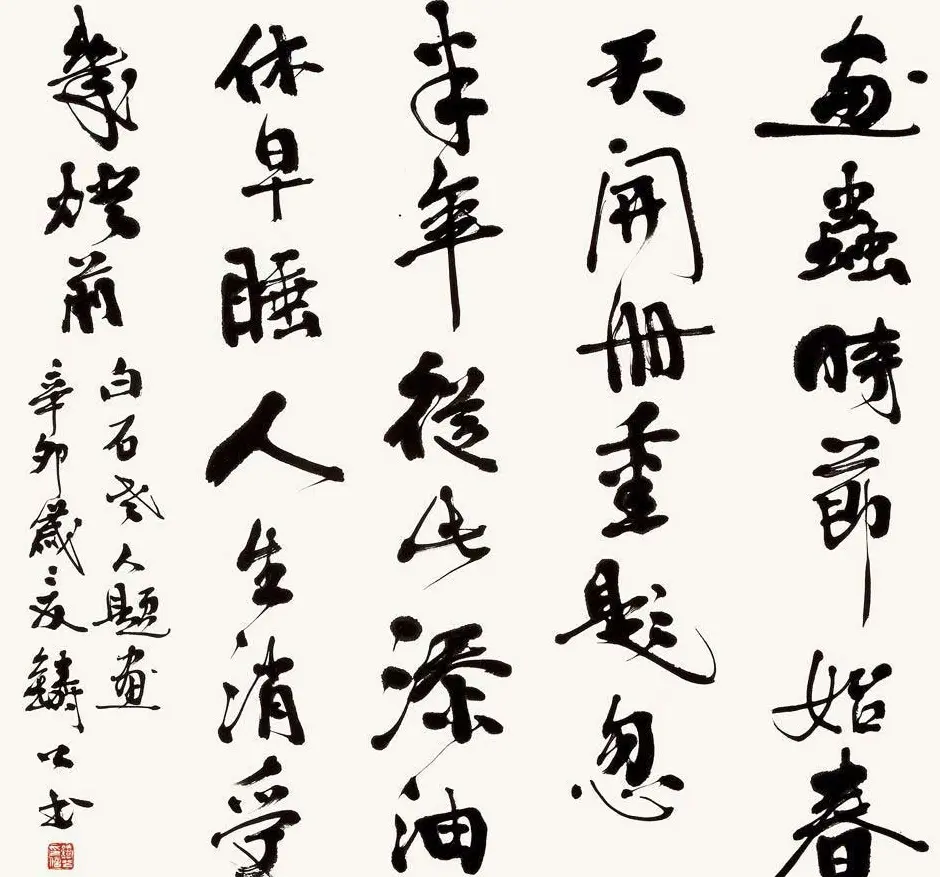 畫蟲時節始春
天開冊重題忽
半年從此添油
休早睡人生消受
幾燈前
白石老人題畫
辛卯歲夏公書